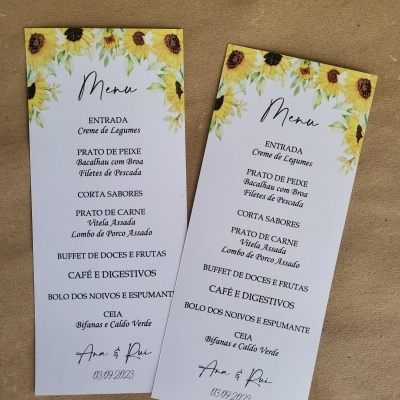 Menu
ENTRADA
Creme de Legumes
PRATO DE PEIXE
Bacalhau com Broa
Filetes de Pescada
CORTA SABORES
PRATO DE CARNE
Vitela Assada
Lombo de Porco Assado
BUFFET DE DOCES E FRUTAS
CAFÉ E DIGESTIVOS
BOLO DOS NOIVOS E ESPUMANT
CEIA
Bifanas e Caldo Verde
Ana & Rui
03.09.2023
Menu
ENTRADA
Creme de Legumes
PRATO DE PEIXE
Bacalhau com Broa
Filetes de Pescada
CORTA SABORES
PRATO DE CARNE
Vitela Assada
Lombo de Porco Assado
BUFFET DE DOCES E FRUTAS
CAFÉ E DIGESTIVOS
BOLO DOS NOIVOS E ESPUMANTE
CEIA
Bifanas e Caldo Verde
Ana & Rui
03.09.2023